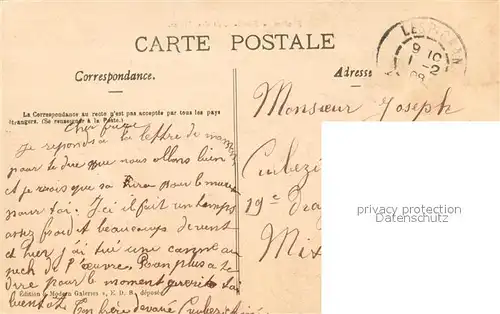 CARTE POSTALE
Correspondance.
Adresse
La Correspondance au recto n'est pas acceptée par tous les pays
étrangers. (Se renseigner à la Poste.)
Cher frère
Je reponds a la lettre de
pour te dire que nous allons bien
et je vois que sa pour le mieux
pour toi. Ici il fait un temps
assez froid et beaucoups de vent
et hier j'ai tué une
de l'œuvres. Rien plus a te
dire pour le moment
bientôt.
Ton frère devoué Cubez
Édition « Modern Galeries », E. D. B., déposée
Monsieur Joseph
Cubezi
19e Dra
Mix
privacy protection
Datenschutz